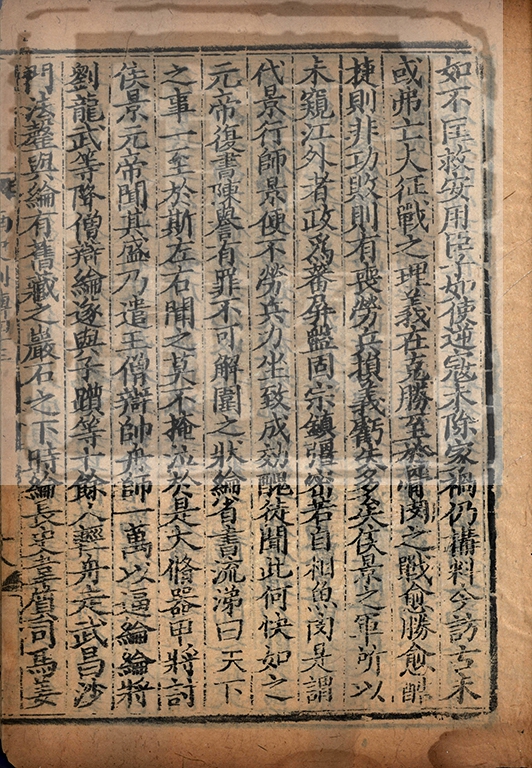 如不匡救安用臣子如使逆寇未除家禍仍構料今訪古未
或弗亡夫征戰之理義在克勝至於骨肉之戰愈勝愈酷
捷則非功敗則有喪勞兵損義虧失多矣侯景之軍所以
未窺江外者政爲蕃屏盤固宗鎮彊密若自相魚肉是謂
代景行師景便不勞兵力坐致成効醜徒聞此何快如之
元帝復書陳譽有罪不可解圍之狀綸省書流涕曰天下
之事一至於斯左右聞之莫不掩泣於是大脩器甲將討
侯景元帝聞其盛乃遣王僧辯帥舟師一萬以逼綸綸將
劉龍武等降僧辯綸遂與子躓等十餘人輕舟走武昌沙
門法馨與綸有舊藏之巖石之下時綸長史韋質司馬姜